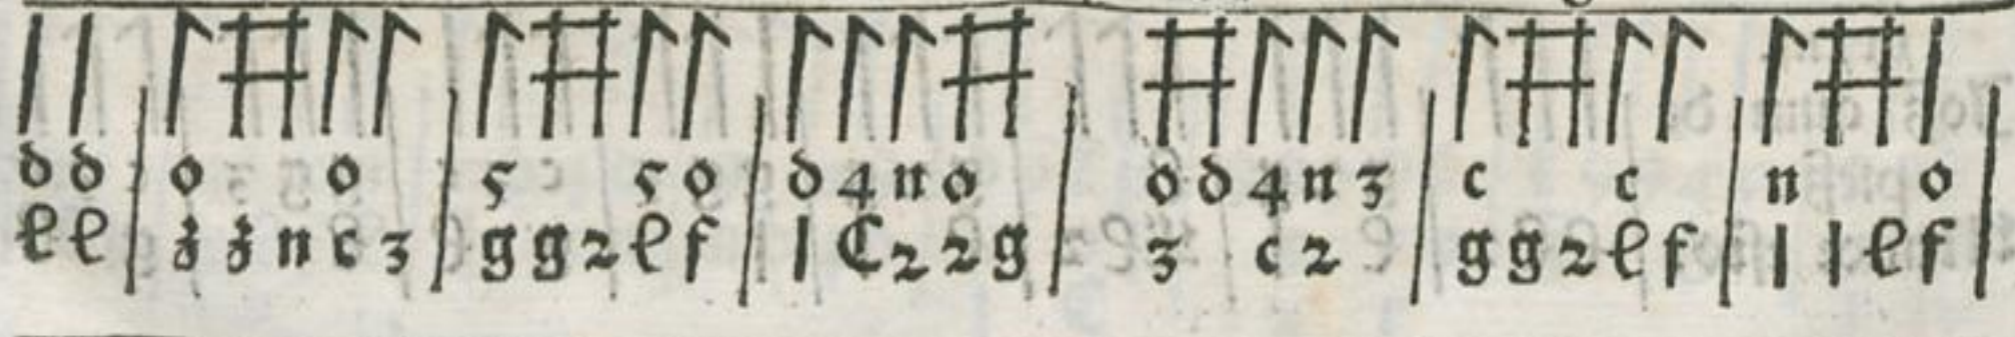 d d | o o | 5 5 o | d 4 n o | o d 4 n 3 | c c | n o |
e e | z z n c 3 | g g 2 e f | 1 C 2 2 g | 3 c 2 | g g 2 e f | 1 1 e f |